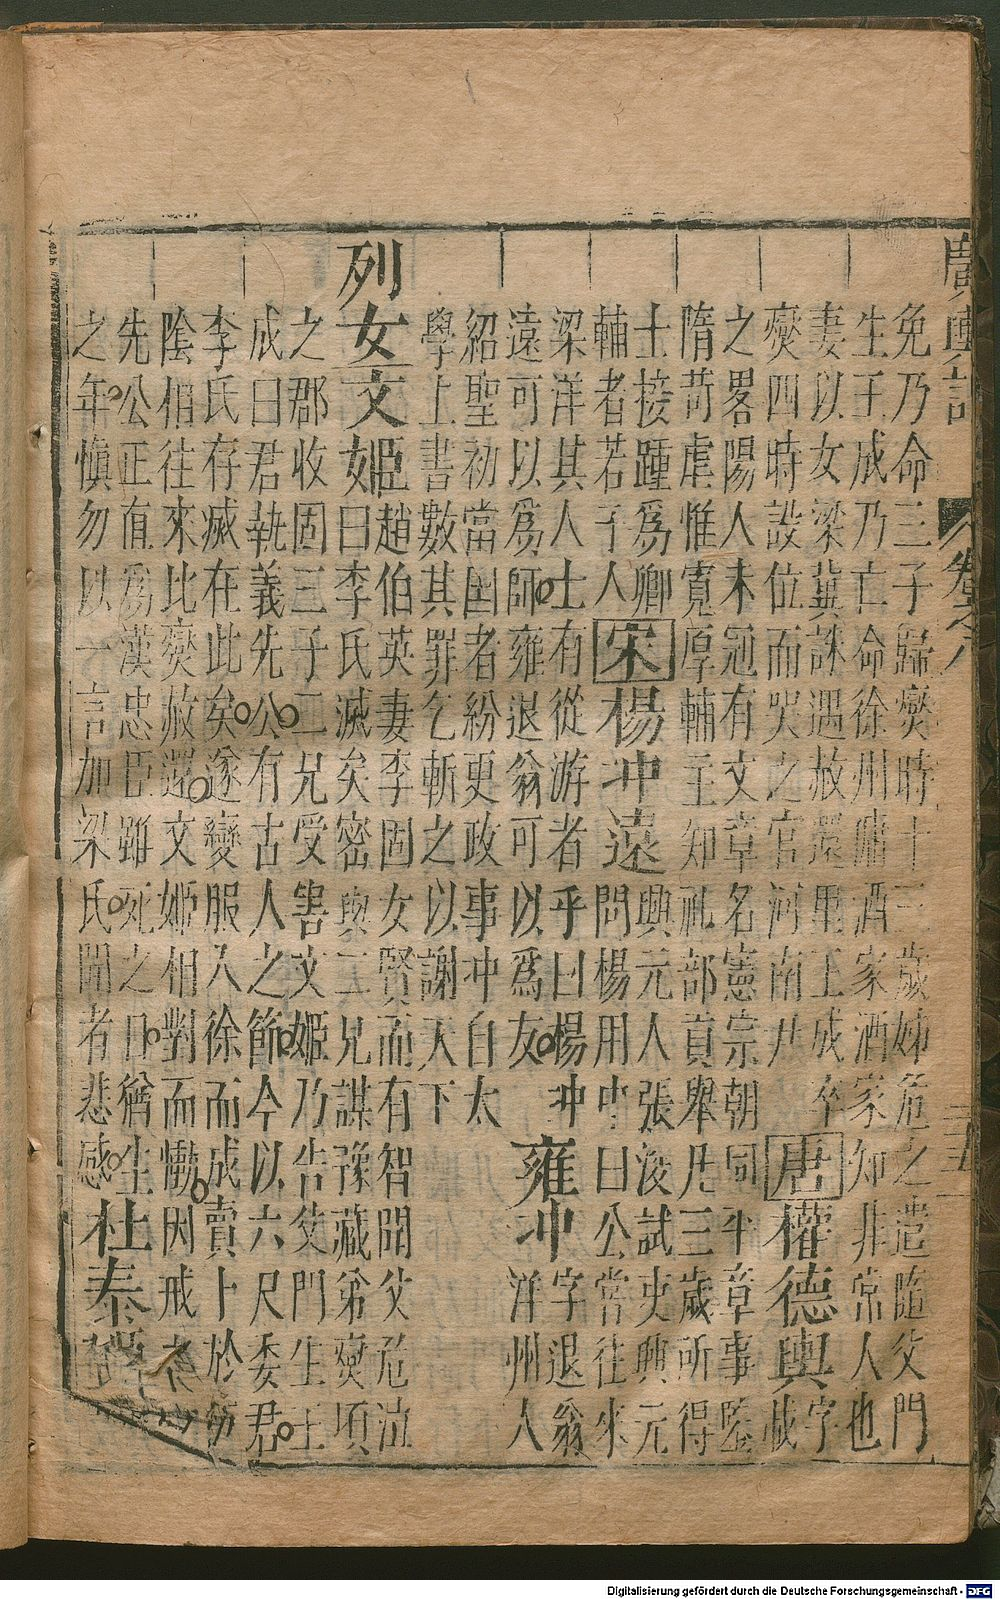 廣輿記
卷之八
二十五
免乃命三子歸燮時十三歲姊危之遣隨父門
生王成乃亡命徐州傭酒家酒家知非常人也
妻以女梁冀誅遇赦還里王成卒
燮四時設位而哭之官河南尹 唐 權德輿字載
之畧陽人未冠有文章名憲宗朝同平章事監
隋苛虐惟寬厚輔主知礼部貢舉凡三歲所得
士接踵為卿 宋 楊冲遠興元人張浚試吏興元
輔者若子人問楊用中曰公常往來
梁洋其人士有從游者乎曰楊冲
遠可以為師雍退翁可以為友 雍冲字退翁洋州人
紹聖初當國者紛更政事冲自太
學上書數其罪乞斬之以謝天下
列女 文姬趙伯英妻李固女賢而有智聞父危泣
曰李氏滅矣密與二兄謀豫藏弟燮頃
之郡收固三子二兄受害文姬乃告父門生王
成曰君執義先公有古人之節今以六尺委君
李氏存滅在此矣遂變服入徐而成賣卜於
陰相往來比燮赦還文姬相對而慟因戒
先公正直為漢忠臣雖死之日猶生
之年慎勿以一言加梁氏聞者悲感 杜泰
Digitalisierung gefördert durch die Deutsche Forschungsgemeinschaft - DFG